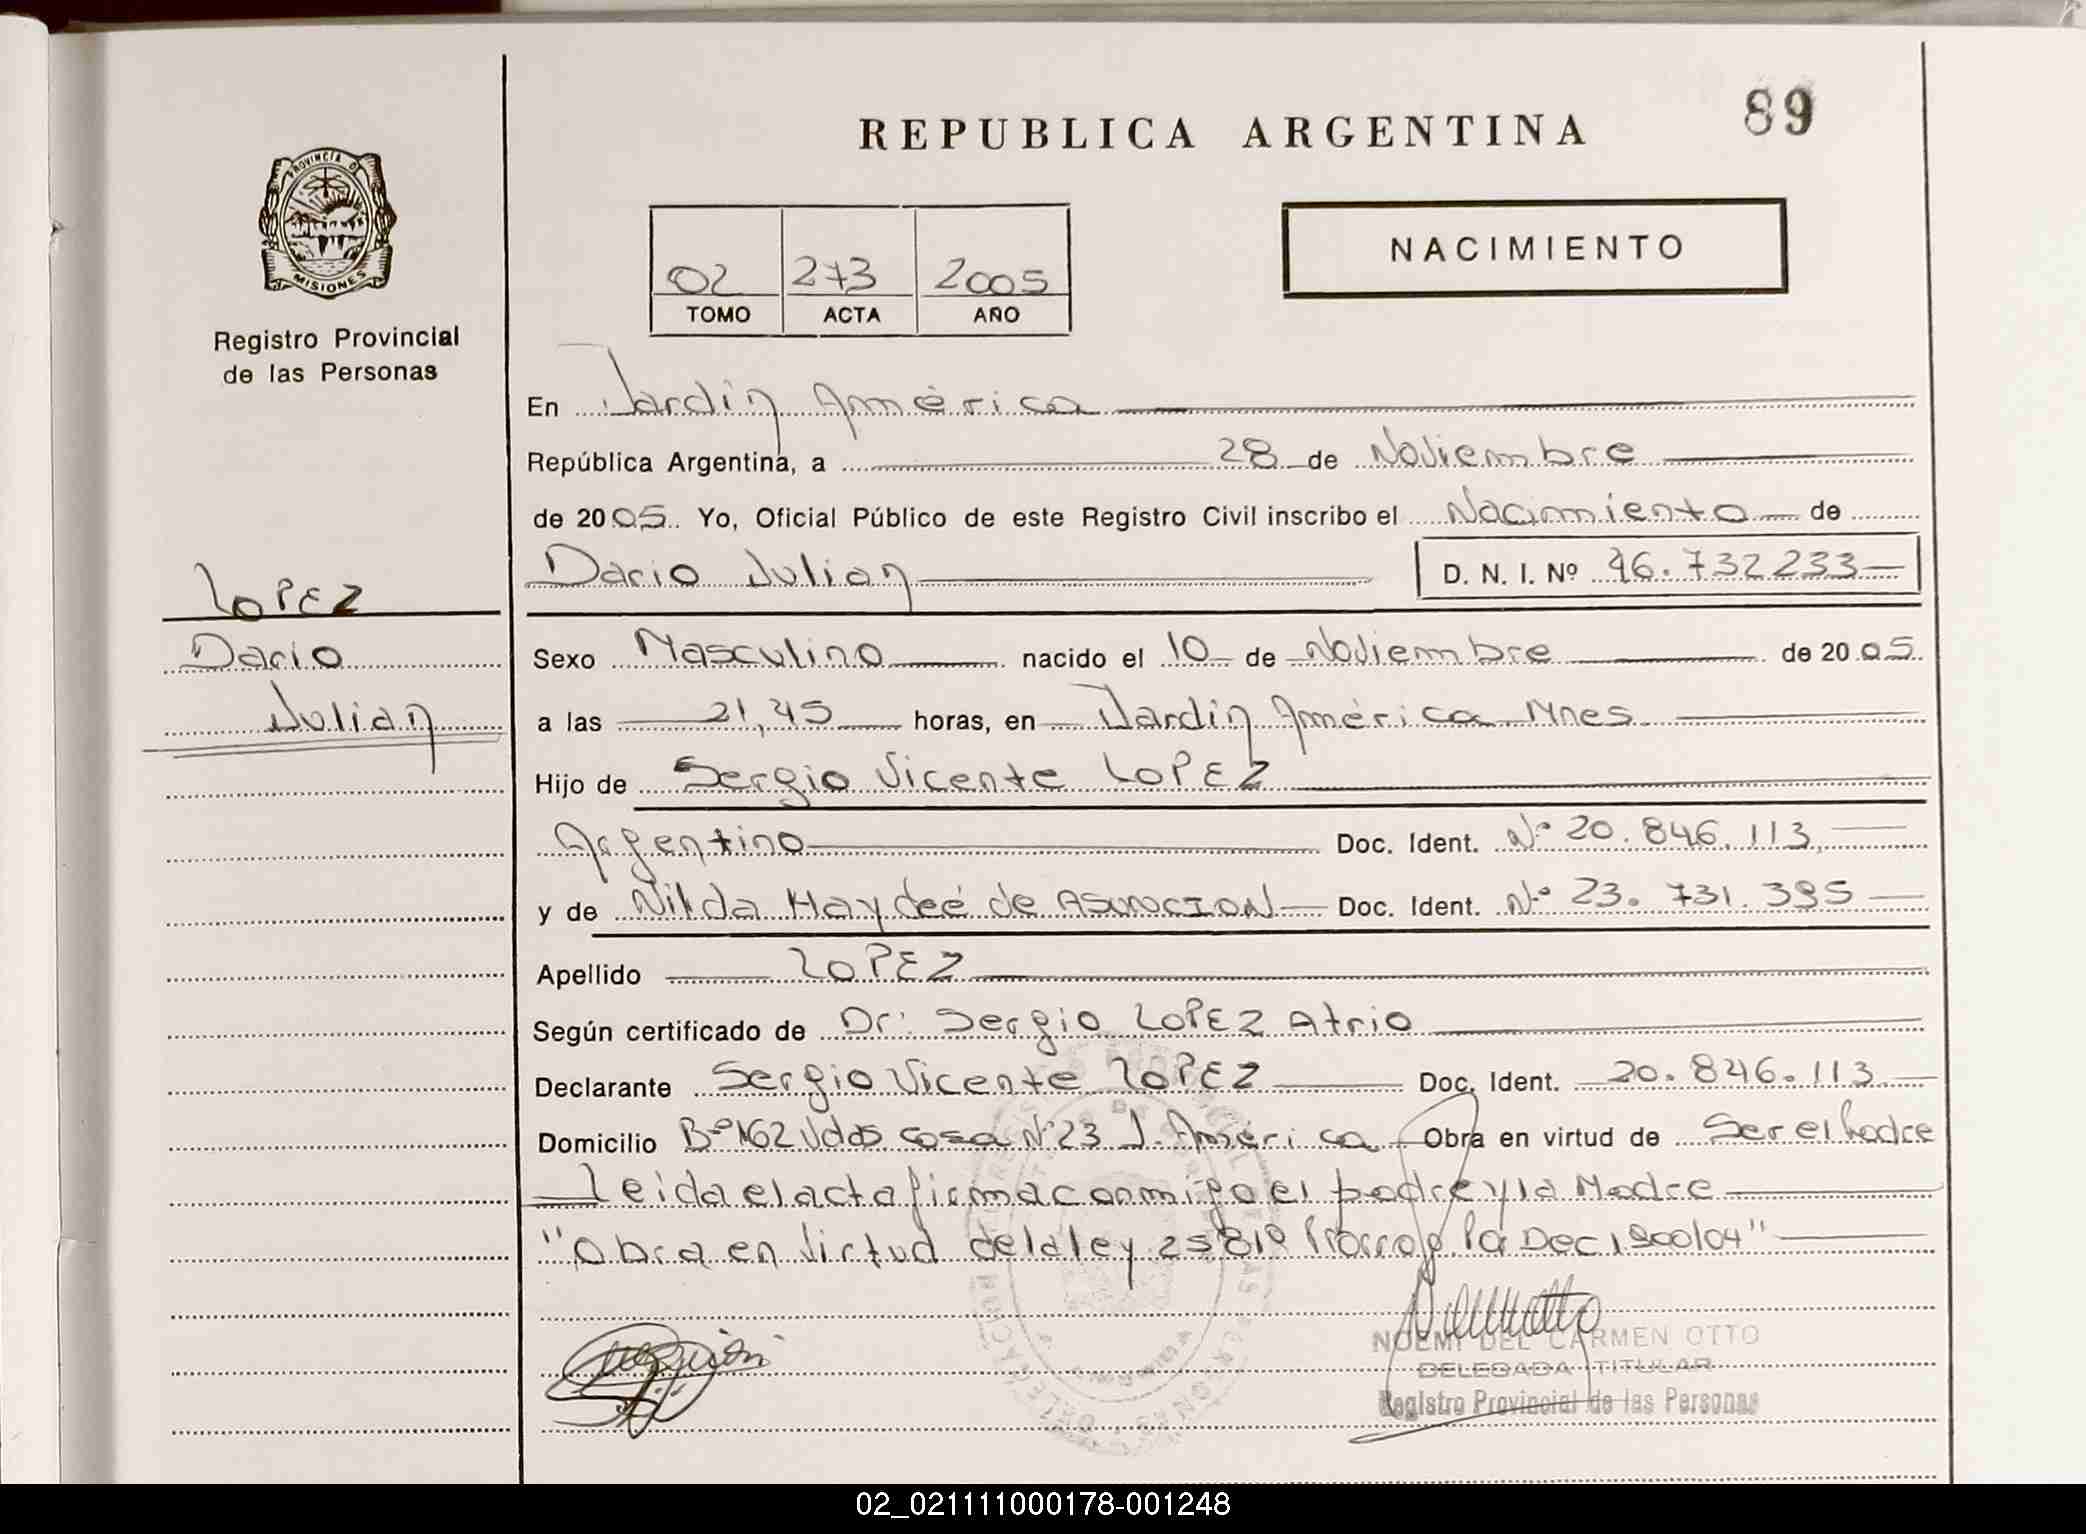 REPUBLICA ARGENTINA
89
PROVINCIA DE
MISIONES
Registro Provincial
de las Personas
NACIMIENTO
02 273 2005
TOMO ACTA AÑO
En Jardín América
República Argentina, a 28 de Noviembre
de 2005. Yo, Oficial Público de este Registro Civil inscribo el Nacimiento de
Dario Julian D. N. I. Nº 46.732233
LOPEZ
Dario
Julian
Sexo Masculino nacido el 10 de Noviembre de 2005.
a las 21,45 horas, en Jardín América Mnes
Hijo de Sergio Vicente LOPEZ
Argentino Doc. Ident. Nº 20.846.113
y de Nilda Haydeé de ASUNCION Doc. Ident. Nº 23.731.395
Apellido LOPEZ
Según certificado de Dr: Sergio LOPEZ Atrio
Declarante Sergio Vicente LOPEZ Doc. Ident. 20.846.113
Domicilio Bº 162 Vdas casa Nº 23 J. América Obra en virtud de Ser el Padre
Leida el acta firma conmigo el padre y la Madre
"Obra en Virtud de la ley 25819 Prorrog Dec 1900/04"
NOEMI DEL CARMEN OTTO
DELEGADA TITULAR
Registro Provincial de las Personas
02_021111000178-001248